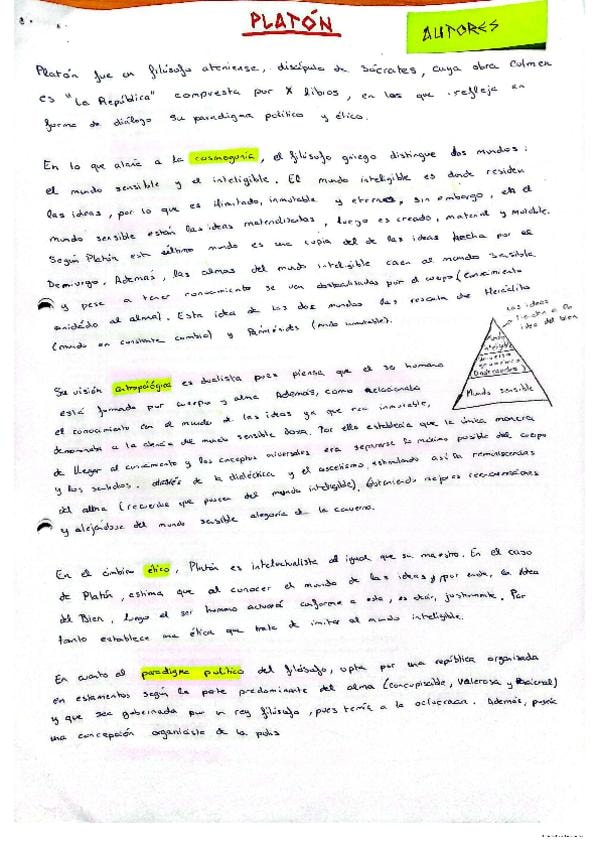 PLATÓN
AUTORES
Platón fue un filósofo ateniense, discípulo de Sócrates, cuya obra culmen
es "La República" compuesta por X libros, en los que refleja en
forma de diálogo su paradigma político y ético.
En lo que atañe a la cosmogonía, el filósofo griego distingue dos mundos:
el mundo sensible y el inteligible. El mundo inteligible es donde residen
las ideas, por lo que es ilimitado, inmutable y eterno, sin embargo, en el
mundo sensible están las ideas materializadas, luego es creado, material y mutable.
Según Platón este último mundo es una copia del de las ideas hecha por el
Demiurgo. Además, las almas del mundo inteligible caen al mundo sensible
y pese a tener conocimiento se ven obstaculizadas por el cuerpo (
al alma). Esta idea de los dos mundos las rescata de Heráclito
(mundo en constante cambio) y Parménides (mundo inmutable).
las ideas
idea del bien
Mundo
inteligible
Mundo sensible
Su visión antropológica es dualista pues piensa que el ser humano
está formado por cuerpo y alma. Además, como relacionaba
el conocimiento con el mundo de las ideas ya que era inmutable,
denominaba a la ciencia del mundo sensible doxa. Por ello establecía que la única manera
de llegar al conocimiento y los conceptos universales era separarse lo máximo posible del cuerpo
y los sentidos. através de la dialéctica y el ascetismo, estimulando así la reminiscencias
del alma (recuerdos que poseen del mundo inteligible), obteniendo mejores reencarnaciones
y alejándose del mundo sensible alegoría de la caverna.
En el ámbito ético, Platón es intelectualista al igual que su maestro. En el caso
de Platón, estima que al conocer el mundo de las ideas y, por ende, la Idea
del Bien, luego el ser humano actuará conforme a esta, es decir, justamente. Por
tanto establece una ética que trate de imitar al mundo inteligible.
En cuanto al paradigma político del filósofo, opta por una república organizada
en estamentos según la parte predominante del alma (concupiscible, valerosa y Racional)
y que sea gobernada por un rey filósofo, pues temía a la oclocracia. Además, poseía
una concepción organicista de la polis